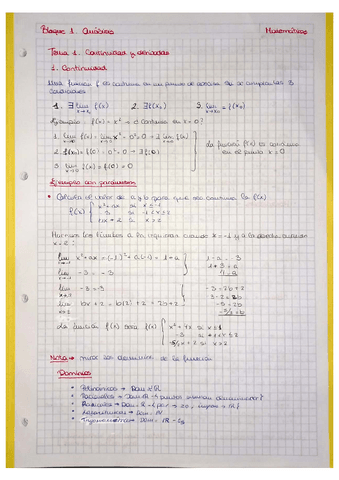 Bloque 1 Análisis Matemáticas
Tema 1. Continuidad y derivadas
1. Continuidad
Una función f es continua en un punto de abscisa si se cumplen las 3
condiciones
1. ∃ lim x→x₀ f(x) 2. ∃ f(x₀) 3. lim x→x₀ = f(x₀)
Ejemplo: f(x) = x² → ¿Continua en x = 0?
1. lim x→0 f(x) = lim x→0 x² = 0² = 0 → ∃ lim x→0 f(x)
2. f(x₀) = f(0) = 0² = 0 → ∃ f(0)
3. lim x→0 f(x) = f(0) = 0
La función f(x) es continua
en el punto x = 0
Ejemplo con parámetros
• Calcula el valor de a y b para que sea continua la f(x)
f(x) { x² + ax si x ≤ -1
3 si -1 < x ≤ 2
bx + 2 si x > 2
Hacemos los límites a la izquierda cuando x = -1 y a la derecha cuando
x = 2:
lim x² + ax = (-1)² + a(-1) = 1 + a
lim -3 = -3
1 - a = 3
1 + 3 = a
4 = a
lim -3 = -3
lim x→2 bx + 2 = b(2) + 2 = 2b + 2
-3 = 2b + 2
-3 - 2 = 2b
-5 = 2b
-5/2 = b
La función f(x) será f(x) { x² + 4x si x ≤ 1
-3 si
-5/2 x + 2 si x > 2
Nota → mirar los dominios de la función
Dominios
• Polinómicas → Dom = ℝ
• Racionales → Dom ℝ - { puntos anulan denominador }
• Radicales →
• Exponenciales → Dom = ℝ
• → Dom = ℝ -